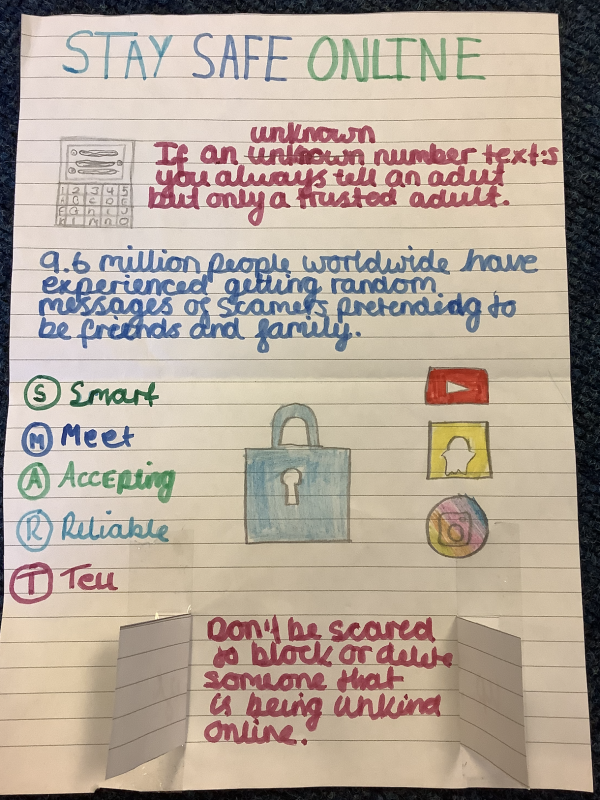 STAY SAFE ONLINE
unknown
If an unknown number text:s
you always tell an adut
but only a trusted adult.
1 2 3 4 5
9.6 million people worldwide have
experienced getting random
messages of scamers pretendidg to
be friends and family.
S Smart
M Meet
A Accepting
R Riliable
T Tell
Don't be scared
to block or delete
someone that
is being unkind
online.